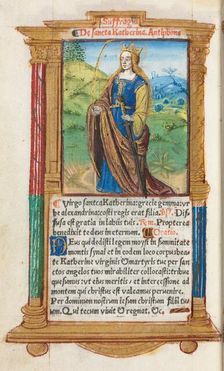 Suffrag
De sancta Katherina. Antiphona
Virgo sancta Katherina: grecie gemma: ur
be alexandrina: costi regis erat filia. Dif
fusa est gratia in labiis tuis. Propterea
benedixit te deus in eternum. Oratio.
Deus qui dedisti legem moysi in summitate
montis synai et in eodem loco corpus bea
te Katherine virginis & martyris tue per san
ctos angelos tuos mirabiliter collocasti: tribue
quesumus ut eius meritis et intercessione ad
montem qui christus est valeamus pervenire.
Per dominum nostrum iesum christum filiū tuu
um. Qui tecum vivit & regnat. &c.